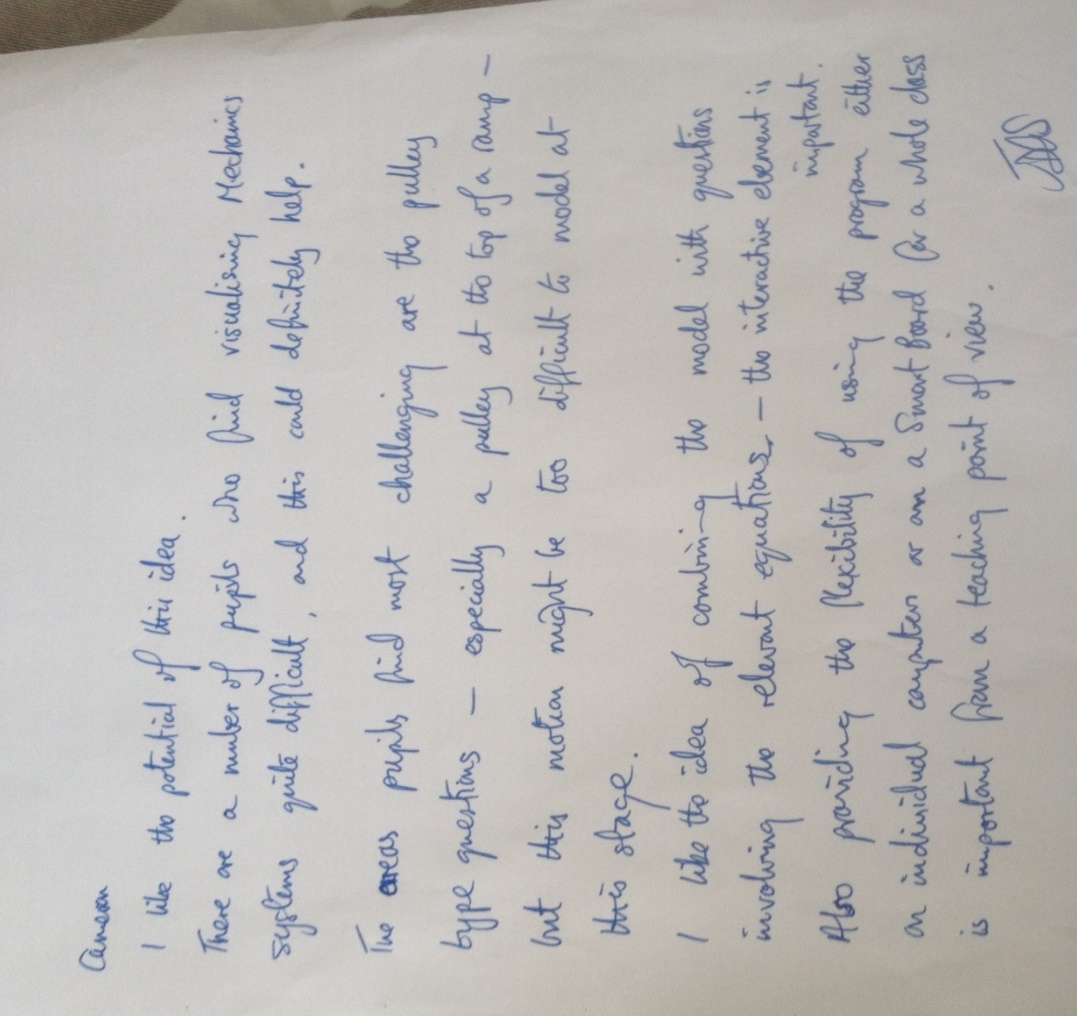 Cameron
I like the potential of this idea.
There are a number of pupils who find visualising Mechanics
systems quite difficult, and this could definitely help.
The areas pupils find most challenging are the pulley
type questions – especially a pulley at the top of a ramp –
but this motion might be too difficult to model at
this stage.
I like the idea of combining the model with questions
involving the relevant equations – the interactive element is
important.
Also providing the flexibility of using the program either
on individual computers or on a Smart Board for a whole class
is important from a teaching point of view.